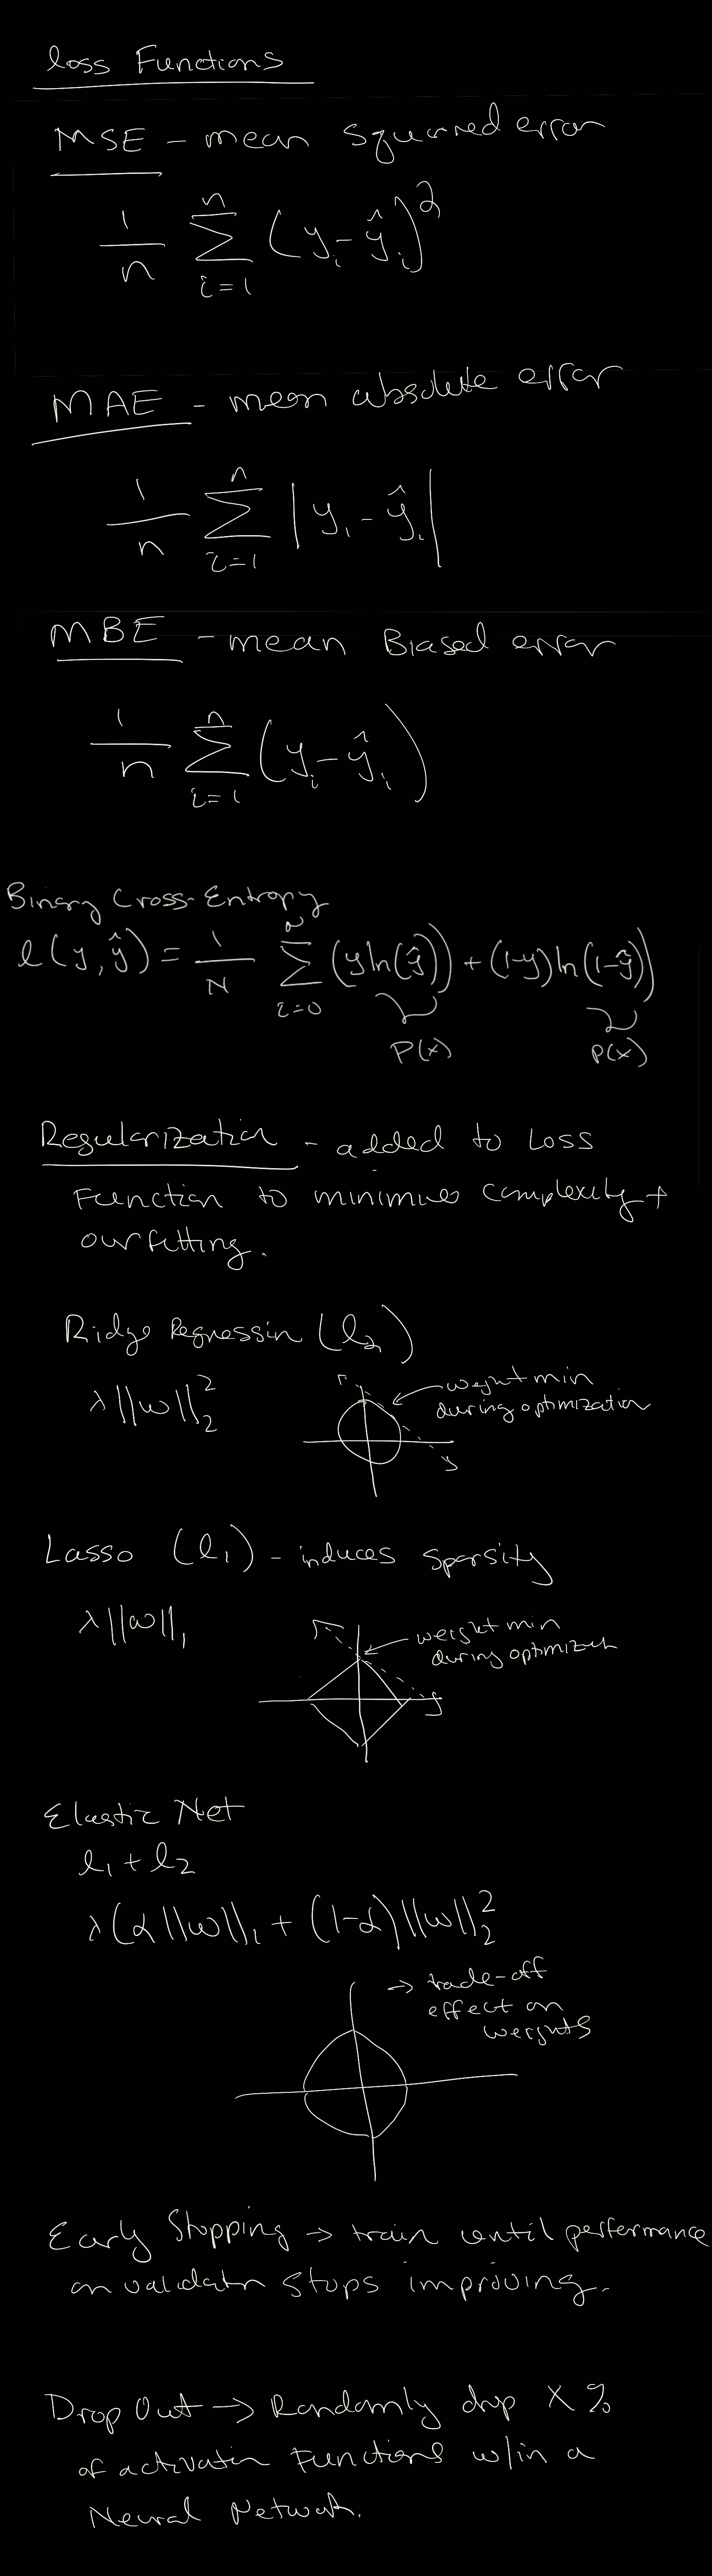 loss Functions
MSE - mean squared error
1/n n∑i=1 (yi - ŷi)²
MAE - mean absolute error
1/n n∑i=1 |yi - ŷi|
MBE - mean Biased error
1/n n∑i=1 (yi - ŷi)
Binary Cross-Entropy
l(y, ŷ) = 1/N N∑i=0 (y ln(ŷ)) + (1-y) ln(1-ŷ))
P(x) P(x)
Regularization - added to Loss
Function to minimize complexity +
ourfitting.
Ridge Regression (l2)
λ||w||₂²
weight min
during optimization
Lasso (l1) - induces sparsity
λ||w||₁
weight min
during optimizatn
Elastic Net
l1 + l2
λ(α||w||₁ + (1-α)||w||₂²
→ trade-off
effect on
weights
Early Stopping → train until performance
on validatn stops improving.
Drop Out → Randomly drop X %
of activatin Functions w/in a
Neural Network.